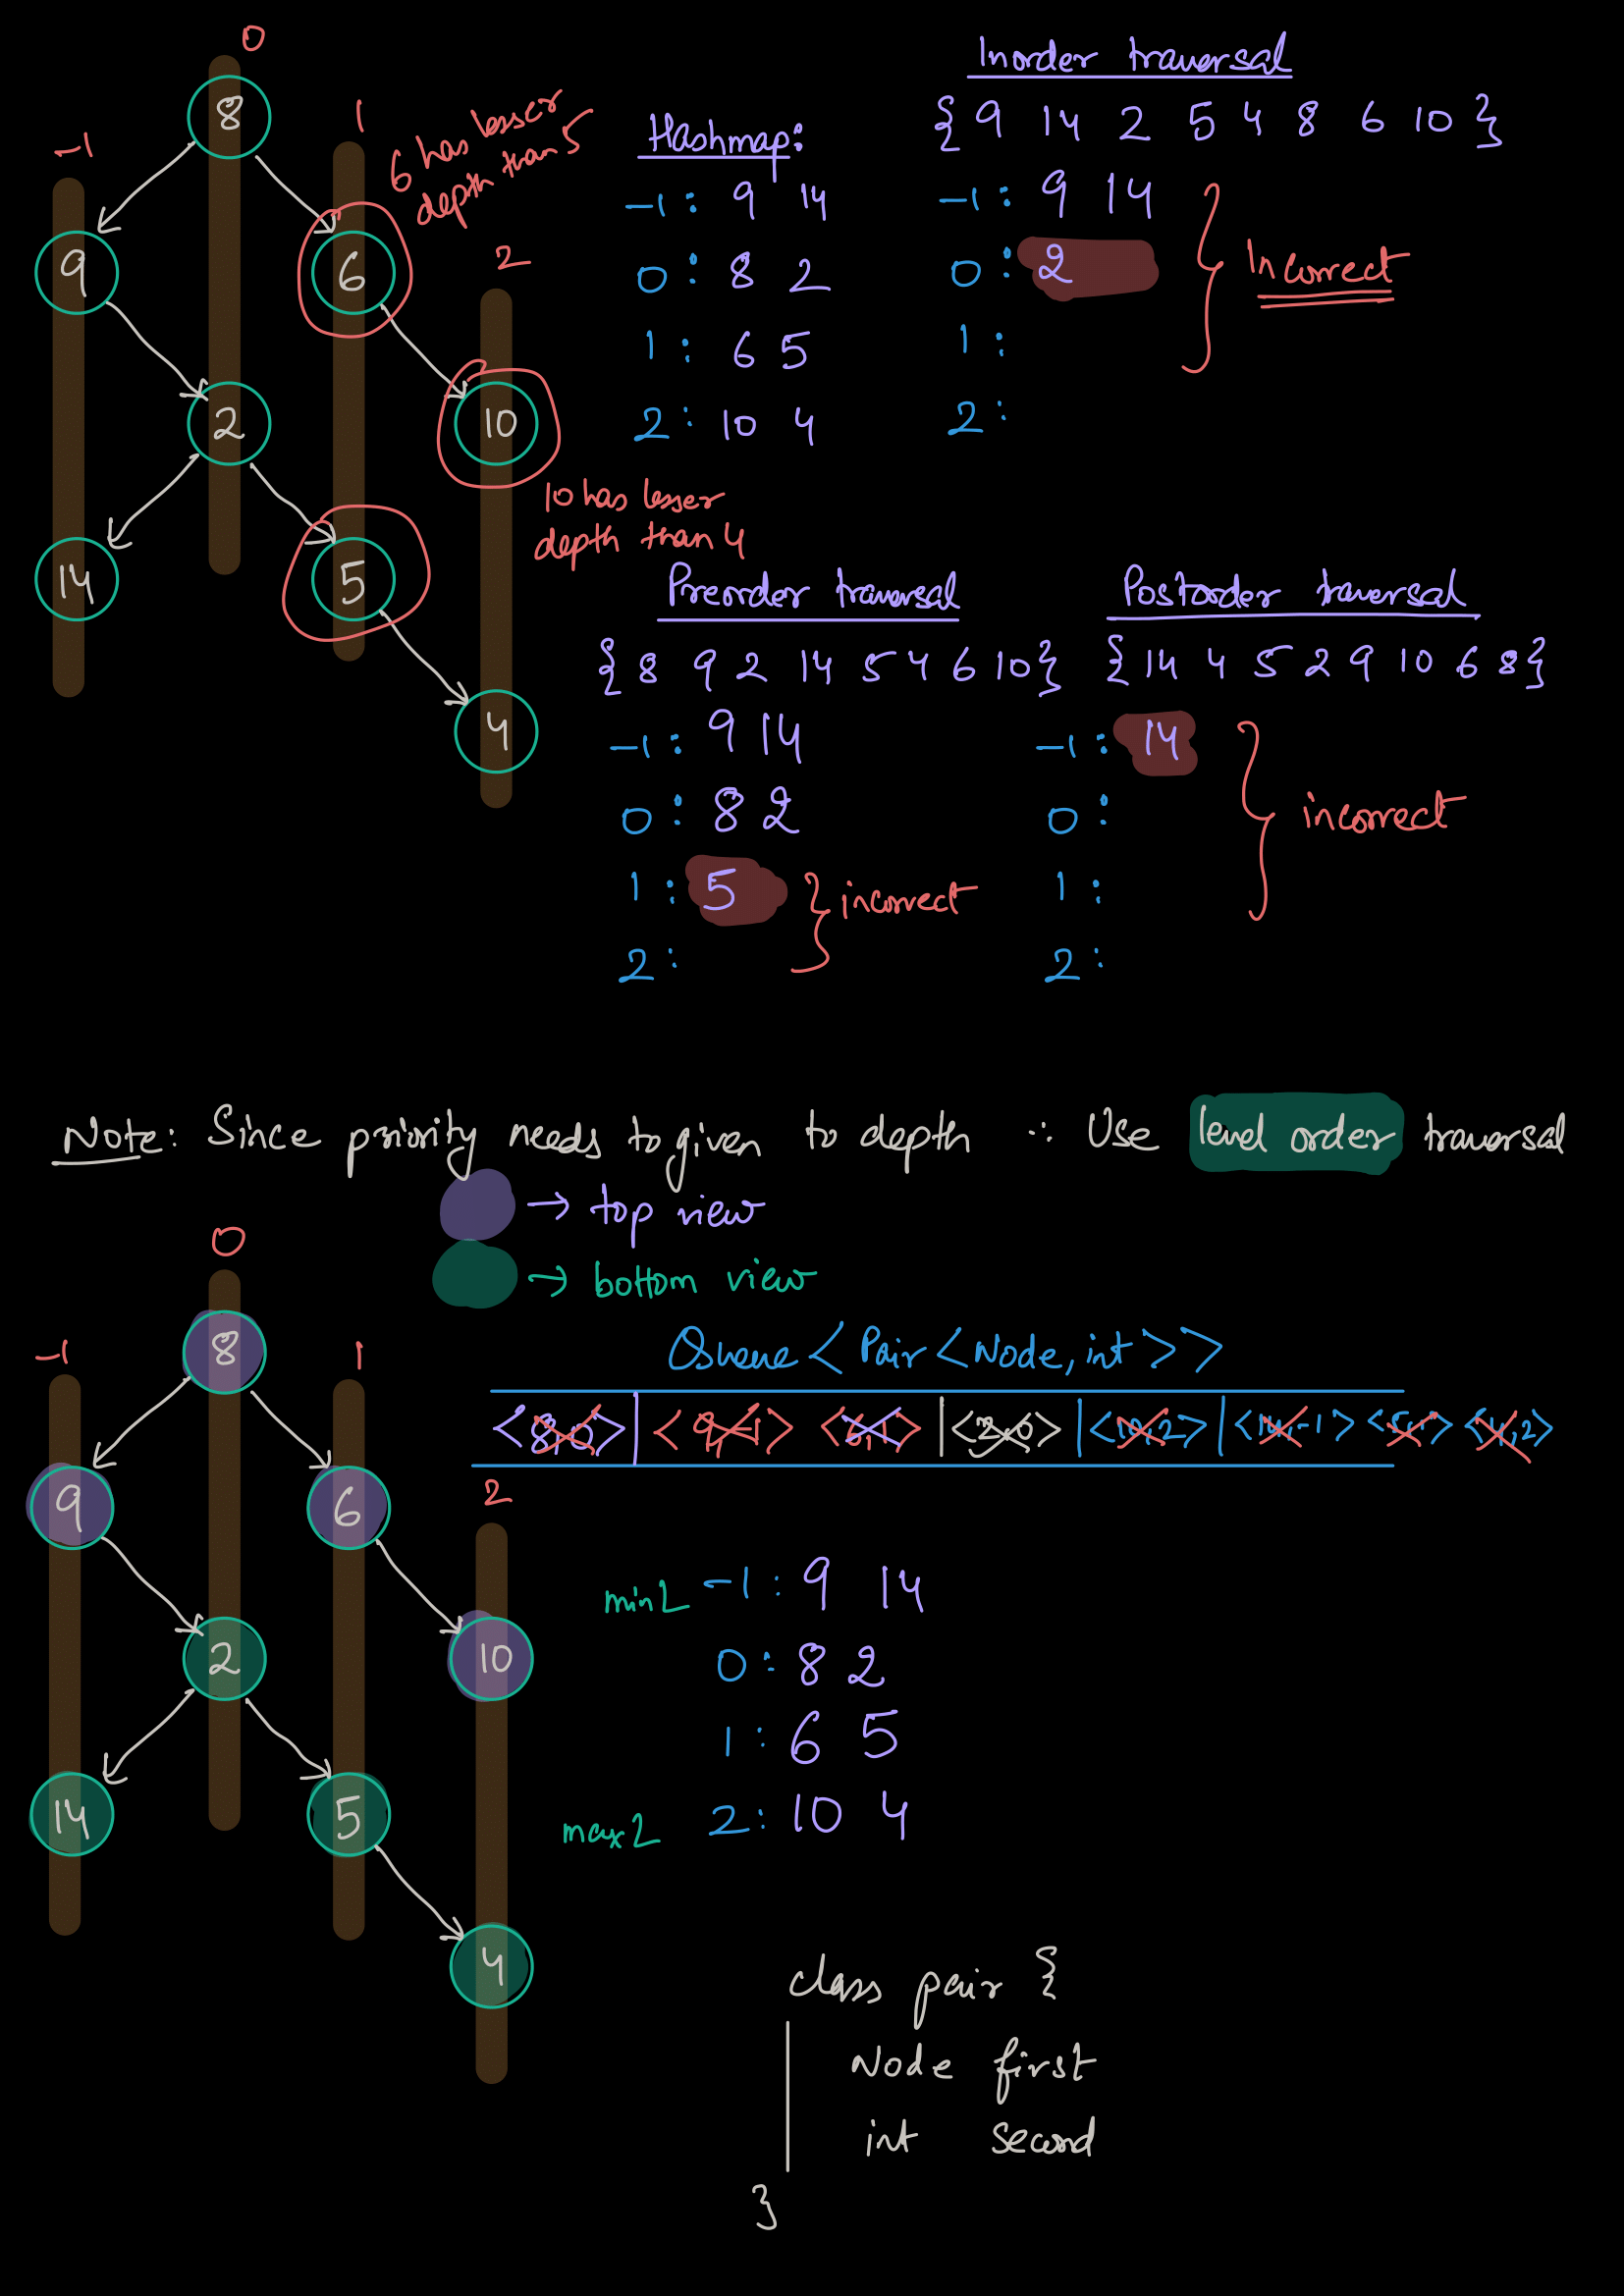 0
8
1
-1
6 has lesser
depth than 5
9
6
2
2
10
14
5
4
10 has lesser
depth than 4
Hashmap:
-1: 9 14
0: 8 2
1: 6 5
2: 10 4
Inorder traversal
{ 9 14 2 5 4 8 6 10 }
-1: 9 14
0: 2
1:
2:
Incorrect
Preorder traversal
{ 8 9 2 14 5 4 6 10 }
-1: 9 14
0: 8 2
1: 5
2:
incorrect
Postorder traversal
{ 14 4 5 2 9 10 6 8 }
-1: 14
0:
1:
2:
incorrect
Note: Since priority needs to given to depth ∴ Use level order traversal
→ top view
→ bottom view
0
8
-1
1
9
6
2
2
10
14
5
4
Queue <Pair <Node, int >>
<8,0> <9,-1> <6,1> <2,0> <10,2> <14,-1> <5,1> <4,2>
minL -1: 9 14
0: 8 2
1: 6 5
maxL 2: 10 4
class pair {
Node first
int second
}